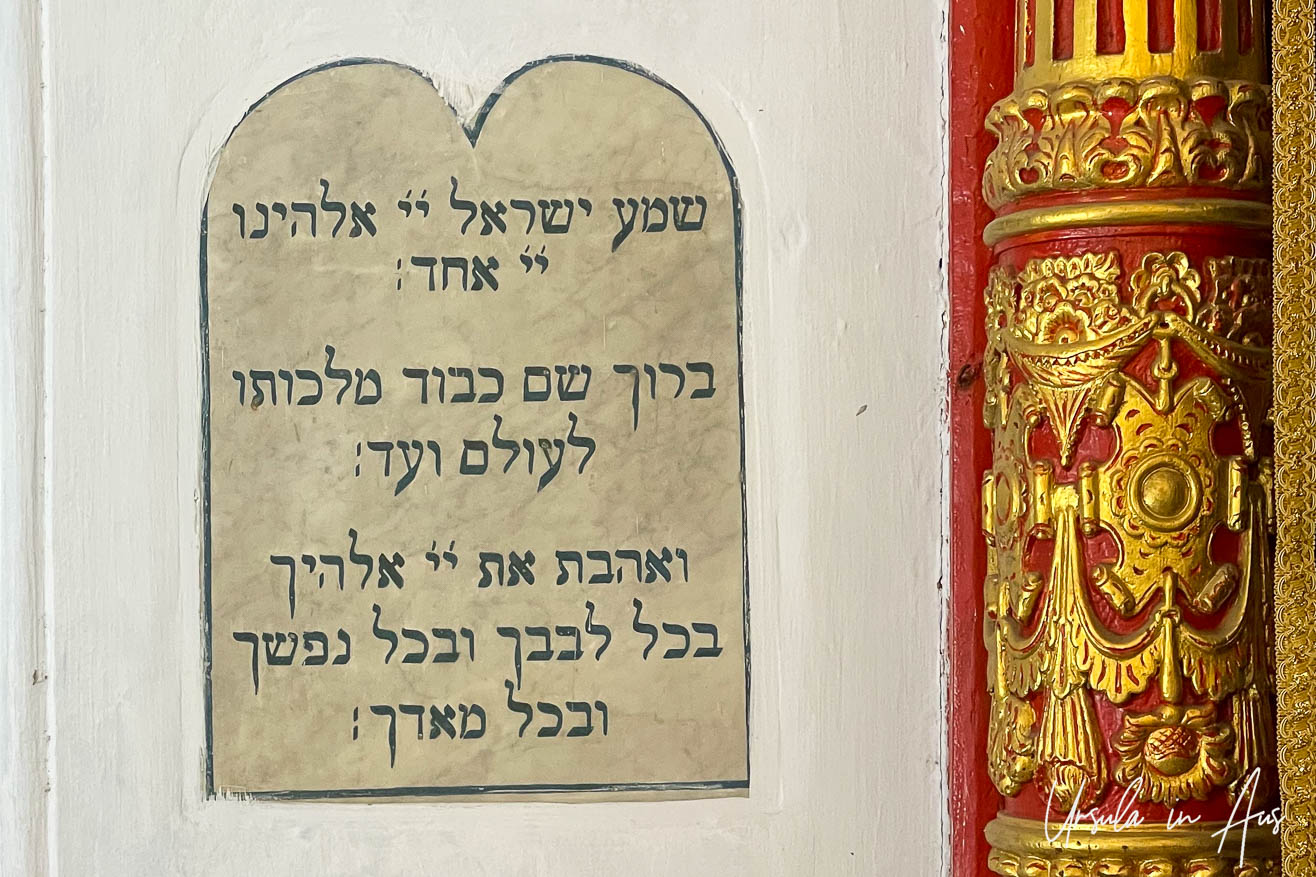 שמע ישראל יי אלהינו
יי אחד׃
ברוך שם כבוד מלכותו
לעולם ועד׃
ואהבת את יי אלהיך
בכל לבבך ובכל נפשך
ובכל מאדך׃
Ursula in Aus